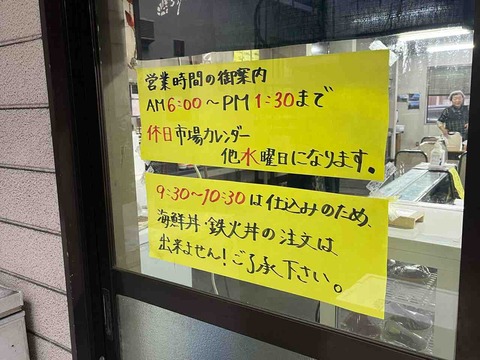 営業時間の御案内
AM6:00～PM1:30まで
休日市場カレンダー
他水曜日になります。
9:30～10:30は仕込みのため、
海鮮丼・鉄火丼の注文は
出来ません!ご了承下さい。